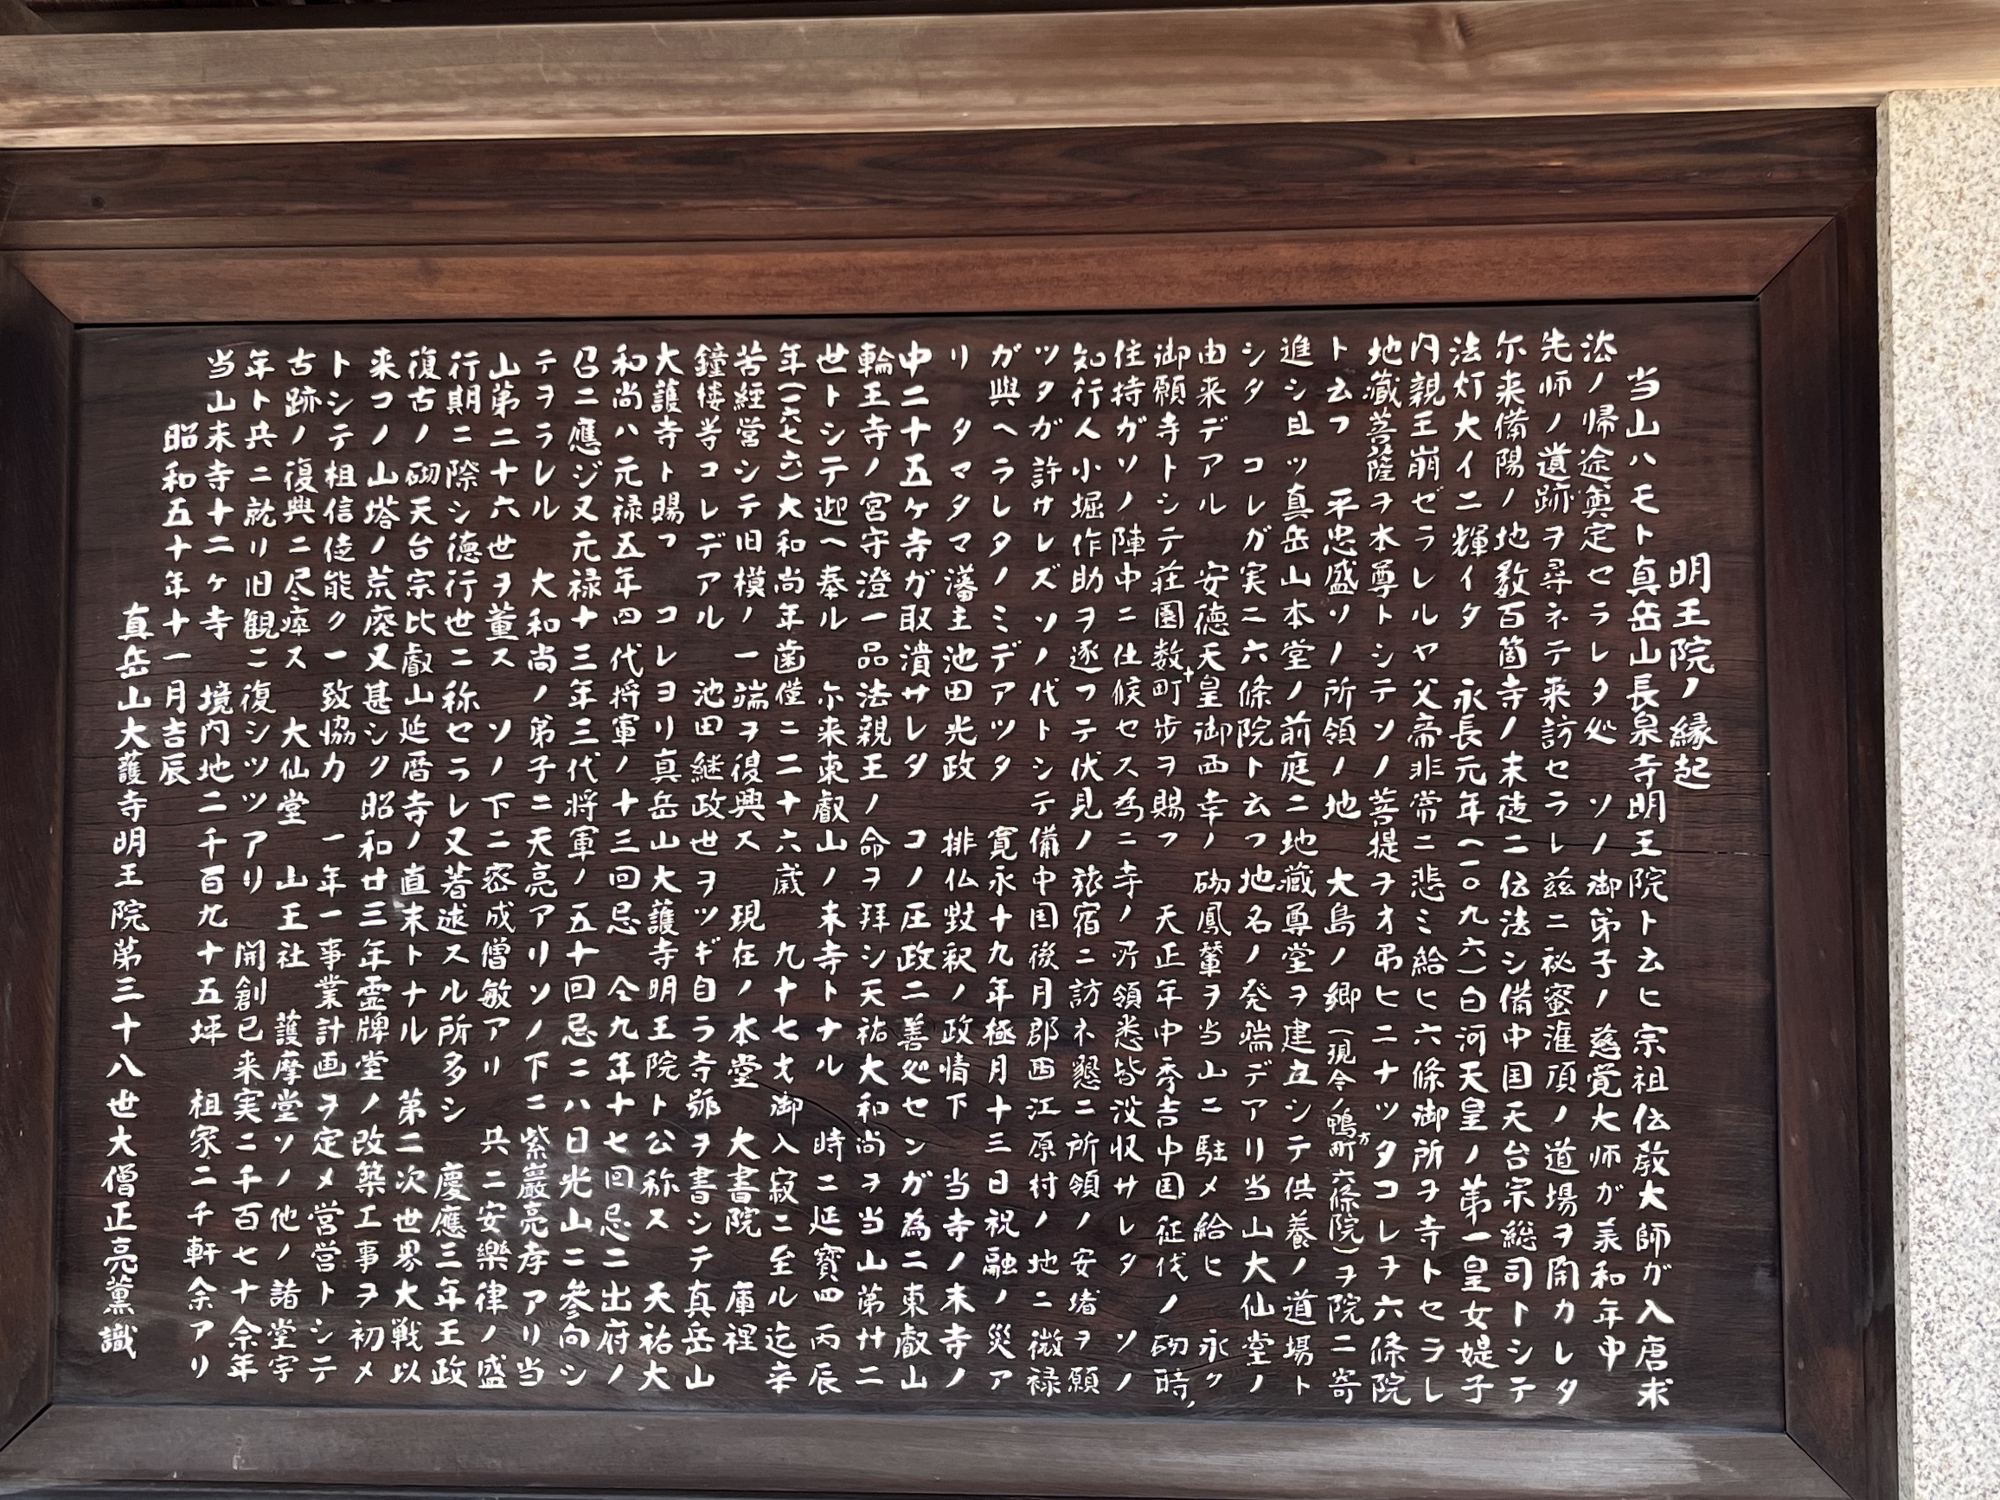 明王院ノ縁起
当山ハモト真岳山長泉寺明王院ト云ヒ宗祖伝教大師ガ入唐求
法ノ帰途奠定セラレタ処 ソノ御弟子ノ慈覚大師ガ美和年中
先師ノ遺跡ヲ尋ネテ来訪セラレ茲ニ秘蜜潅頂ノ道場ヲ開カレタ
尓来備陽ノ地数百箇寺ノ末徒ニ伝法シ備中国天台宗総司トシテ
法灯大イニ輝イタ 永長元年(一〇九六)白河天皇ノ第一皇女媞子
内親王崩ゼラレルヤ父帝非常ニ悲ミ給ヒ六條御所ヲ寺トセラレ
地蔵菩薩ヲ本尊トシテソノ菩提ヲオ弔ヒニナツタコレヲ六條院
ト云フ 平忠盛ソノ所領ノ地 大島ノ郷(現今ノ鴨方町六條院)ヲ院ニ寄
進シ且ツ真岳山本堂ノ前庭ニ地蔵尊堂ヲ建立シテ供養ノ道場ト
シタ コレガ実ニ六條院ト云フ地名ノ発端デアリ当山大仙堂ノ
由来デアル 安徳天皇御西幸ノ砌鳳輦ヲ当山ニ駐メ給ヒ 永ク
御願寺トシテ荘園数十町歩ヲ賜フ 天正年中秀吉中国征伐ノ砌時ノ
住持ガソノ陣中ニ仕候セス為ニ寺ノ所領悉皆没収サレタ ソノ
知行人小堀作助ヲ逐フテ伏見ノ旅宿ニ訪ネ懇ニ所領ノ安堵ヲ願
ツタガ許サレズソノ代トシテ備中国後月郡西江原村ノ地ニ微禄
ガ與ヘラレタノミデアツタ 寛永十九年極月十三日祝融ノ災ア
リ タマタマ藩主池田光政 排仏毀釈ノ政情下 当寺ノ末寺ノ
中二十五ヶ寺ガ取潰サレタ コノ圧政ニ善処センガ為ニ東叡山
輪王寺ノ宮守澄一品法親王ノ命ヲ拝シ天祐大和尚ヲ当山第廿二
世トシテ迎ヘ奉ル 尓来東叡山ノ末寺トナル 時ニ延寶四丙辰
年(一六七六)大和尚年歯僅ニ二十六歳 九十七才御入寂ニ至ル迄辛
苦経営シテ旧模ノ一端ヲ復興ス 現在ノ本堂 大書院 庫裡
鐘楼等コレデアル 池田継政世ヲツギ自ラ寺號ヲ書シテ真岳山
大護寺ト賜フ コレヨリ真岳山大護寺明王院ト公称ス 天祐大
和尚ハ元禄五年四代将軍ノ十三回忌 仝九年十七回忌ニ出府ノ
召ニ應ジ又元禄十三年三代将軍ノ五十回忌ニハ日光山ニ参向シ
テヲラレル 大和尚ノ弟子ニ天亮アリソノ下ニ紫巖亮孝アリ当
山第二十六世ヲ董ス ソノ下ニ密成僧敏アリ 共ニ安樂律ノ盛
行期ニ際シ徳行世ニ称セラレ又著述スル所多シ 慶應三年王政
復古ノ砌天台宗比叡山延暦寺ノ直末トナル 第二次世界大戦以
来コノ山塔ノ荒廃又甚シク昭和廿三年霊牌堂ノ改築工事ヲ初メ
トシテ祖信徒能ク一致協力 一年一事業計画ヲ定メ営営トシテ
古跡ノ復興ニ尽瘁ス 大仙堂 山王社 護摩堂ソノ他ノ諸堂宇
年ト共ニ就リ旧観ニ復シツツアリ 開創已来実ニ千百七十余年
当山末寺十二ヶ寺 境内地二千百九十五坪 祖家二千軒余アリ
昭和五十年十一月吉辰
真岳山大護寺明王院第三十八世大僧正亮薫識